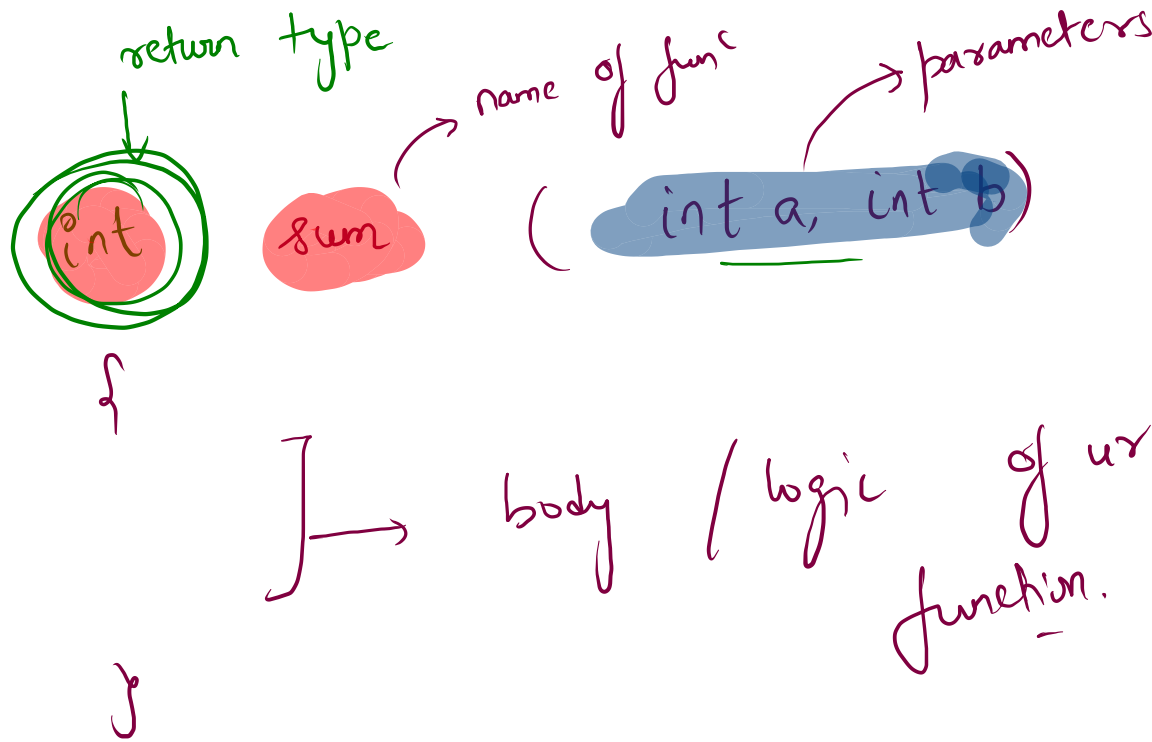 return type
name of func
parameters
int sum ( int a, int b )
{
body / logic of ur
function.
}